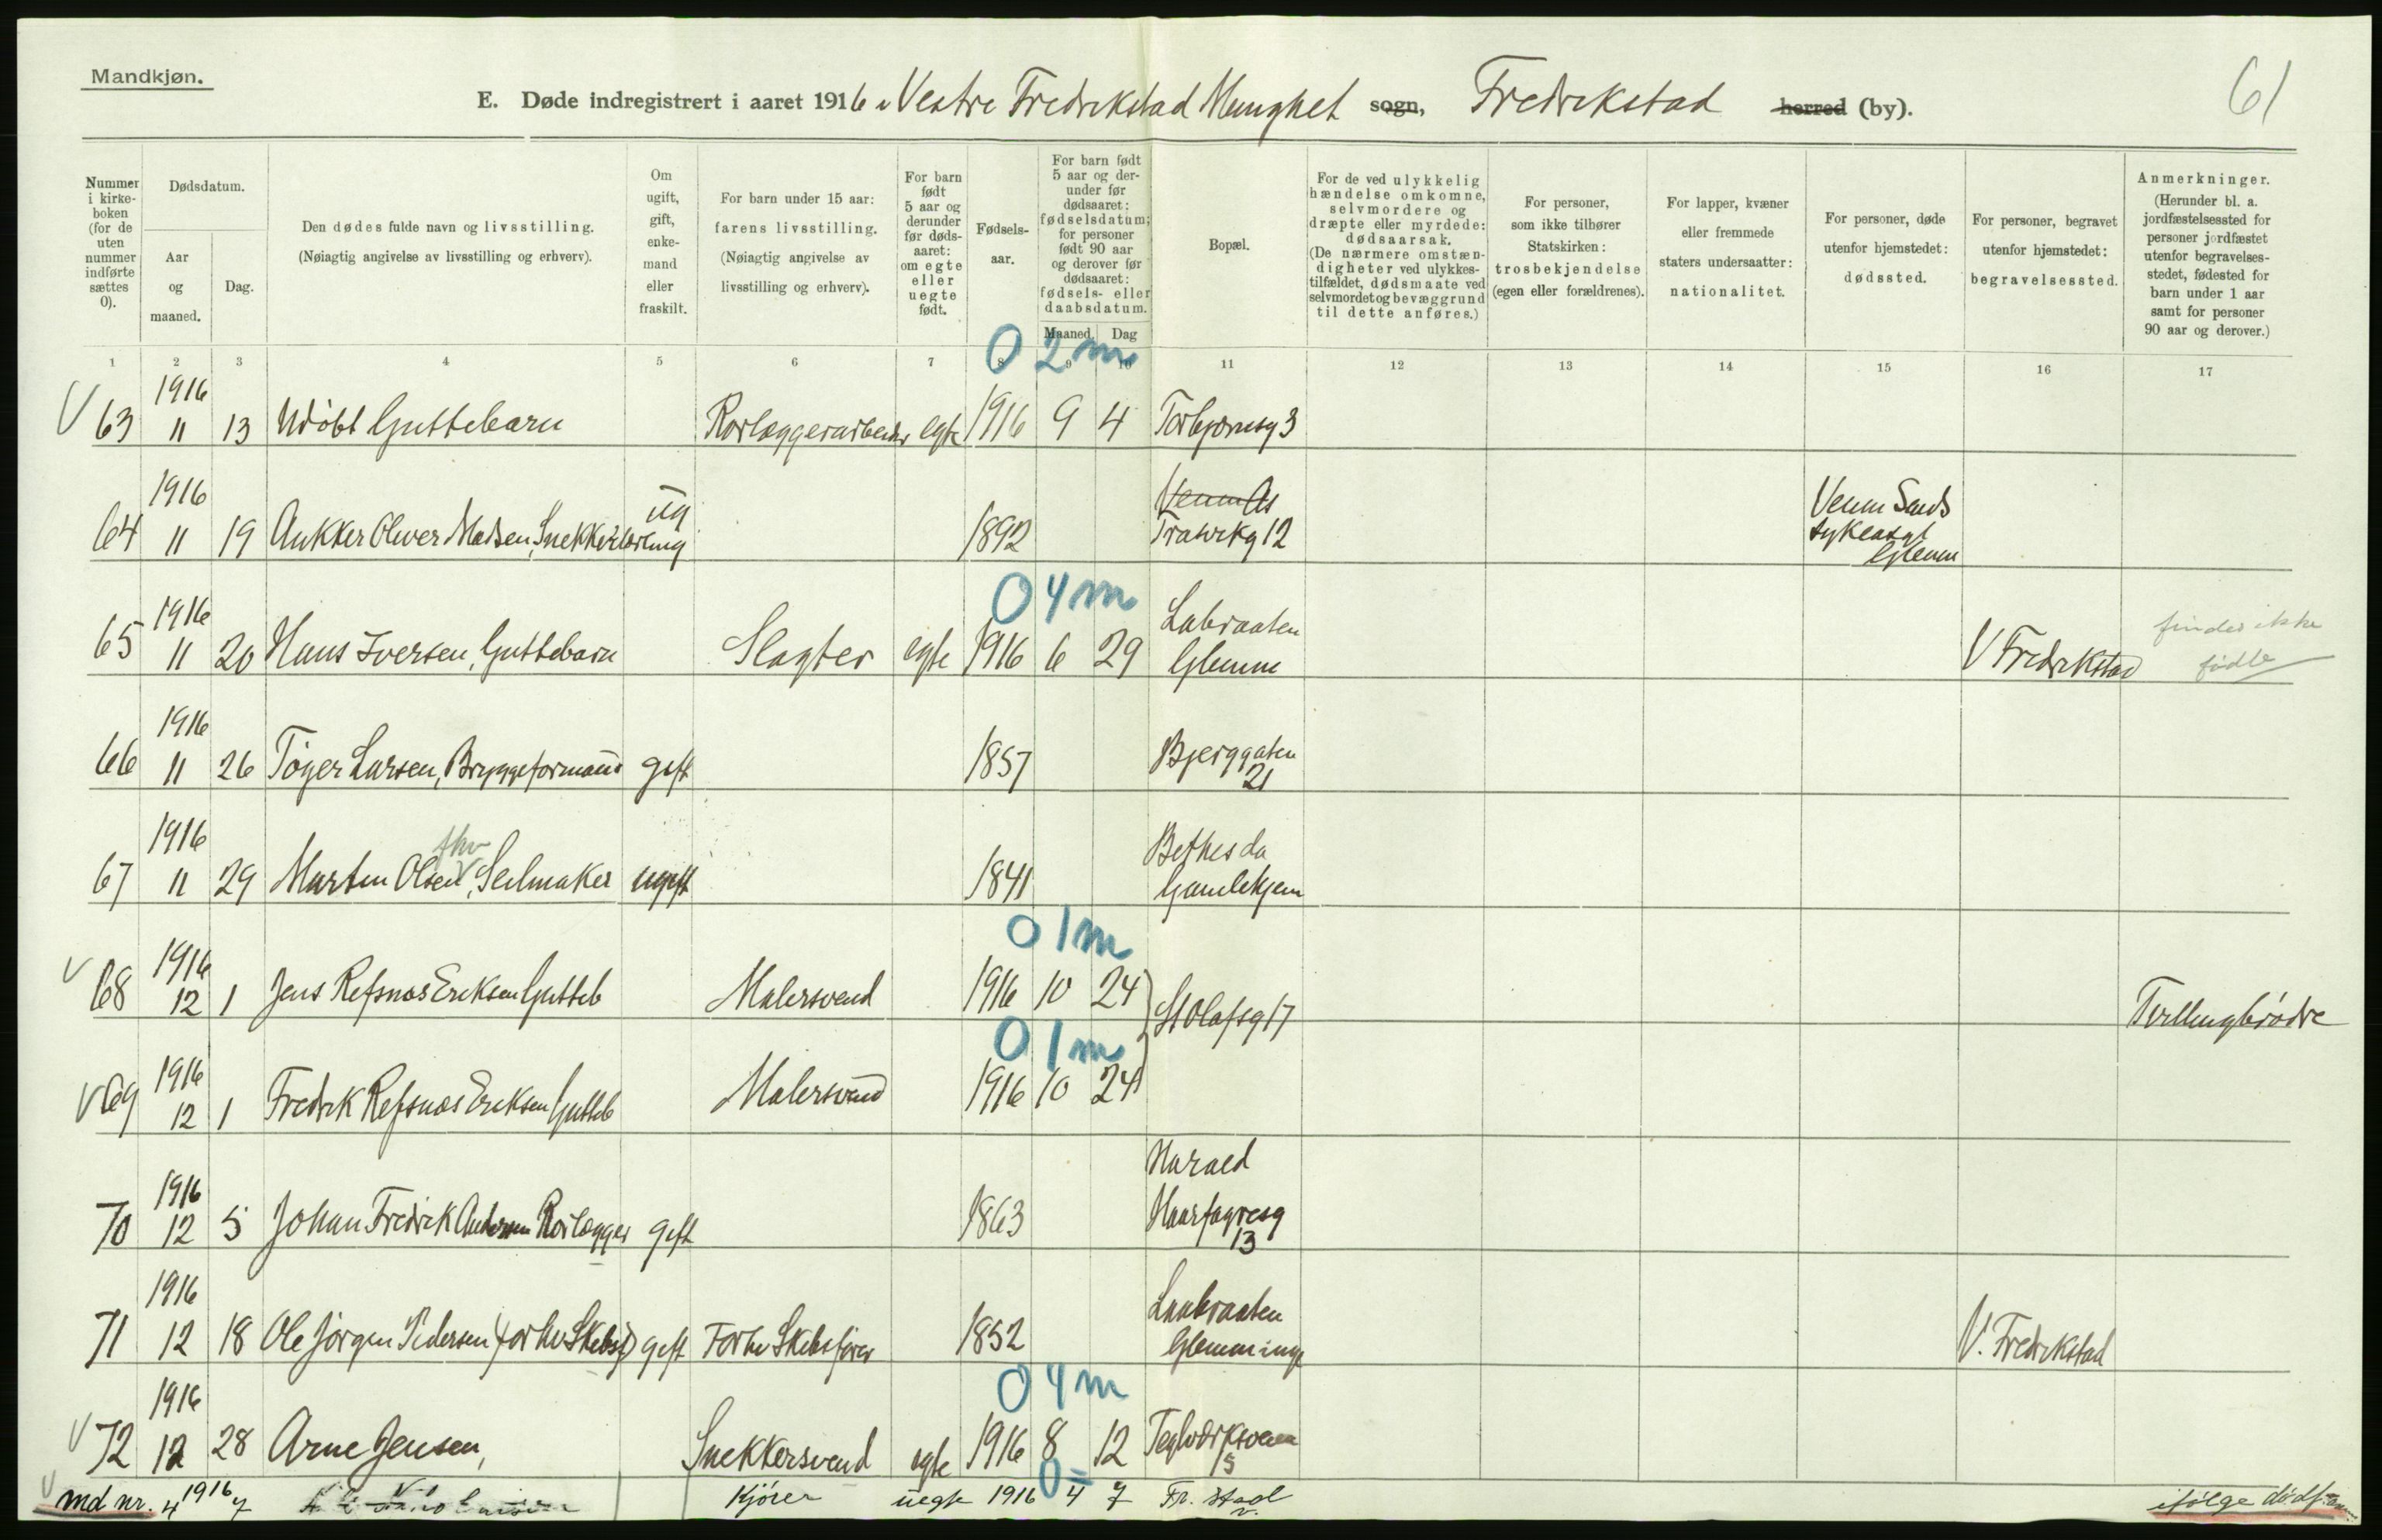 Mandkjøn.
61
E. Døde indregistrert i aaret 1916 i Vestre Fredrikstad Menighet sogn, Fredrikstad herred (by).
Nummer i kirkeboken (for de uten nummer indførte sættes 0).
Dødsdatum.
Aar og maaned.
Dag.
Den dødes fulde navn og livsstilling.
(Nøiagtig angivelse av livsstilling og erhverv).
Om ugift, gift, enkemand eller fraskilt.
For barn under 15 aar: farens livsstilling.
(Nøiagtig angivelse av livsstilling og erhverv).
For barn født 5 aar og derunder før dødsaaret: om egte eller uegte født.
Fødselsaar.
For barn født 5 aar og derunder før dødsaaret: fødselsdatum; for personer født 90 aar og derover før dødsaaret: fødsels- eller daabsdatum.
Maaned Dag
Bopæl.
For de ved ulykkelig hændelse omkomne, selvmordere og dræpte eller myrdede: dødsaarsak.
(De nærmere omstændigheter ved ulykkestilfældet, dødsmaate ved selvmordet og bevæggrund til dette anføres.)
For personer, som ikke tilhører Statskirken: trosbekjendelse (egen eller forældrenes).
For lapper, kvæner eller fremmede staters undersaatter: nationalitet.
For personer, døde utenfor hjemstedet: dødssted.
For personer, begravet utenfor hjemstedet: begravelsessted.
Anmerkninger.
(Herunder bl. a. jordfæstelsessted for personer jordfæstet utenfor begravelsesstedet, fødested for barn under 1 aar samt for personer 90 aar og derover.)
1 2 3 4 5 6 7 8 9 10 11 12 13 14 15 16 17
0 2 m
V 63 1916 11 13 Udøbt Guttebarn Rørlæggerarbeider egte 1916 9 4 Torbjørnsg 3
64 1916 11 19 Oliver Madsen, Snekkerlærling ug 1892 12 Venm Sands Glemm
0 4 m
65 1916 11 20 Hans Iversen, Guttebarn Slagter egte 1916 6 29 Labraaten Glemme V Fredrikstad findes ikke fødte
66 1916 11 26 Tøger Larsen, Bryggeformand gift 1857 Bjerggaten 21
67 1916 11 29 Martin Olsen, fhv Seilmaker ugift 1841 Bethesda Gamlehjem
0 1 m
V 68 1916 12 1 Jens Refsnæs Eriksen Gutteb Malersvend 1916 10 24 St Olafsg 17 Tvillingbrødre
0 1 m
V 69 1916 12 1 Fredrik Refsnæs Eriksen Gutteb Malersvend 1916 10 24
70 1916 12 5 Johan Fredrik Andersen Rørlægger gift 1863 Harald Haarfagresg 13
71 1916 12 18 Ole Jørgen Pedersen (forhv Skibsf) gift Forhv Skibsfører 1852 Labraaten Glemminge V. Fredrikstad
0 4 m
V 72 1916 12 28 Arne Jensen, Snekkersvend egte 1916 8 12 Teglværksveien 15
0 =
V md nr. 4 1916 7 Kjører uegte 1916 4 7 Fr. stad v. ifølge dødf.